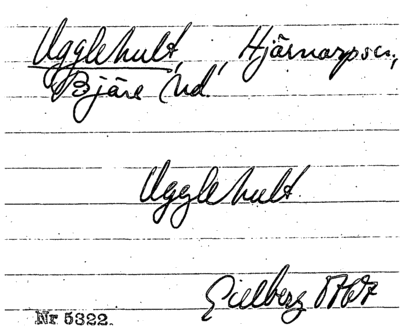 Ugglehult, Hjärnarps sn,
Bjäre hd.
Ugglehult
Gillberg 1767
Nr 5322.